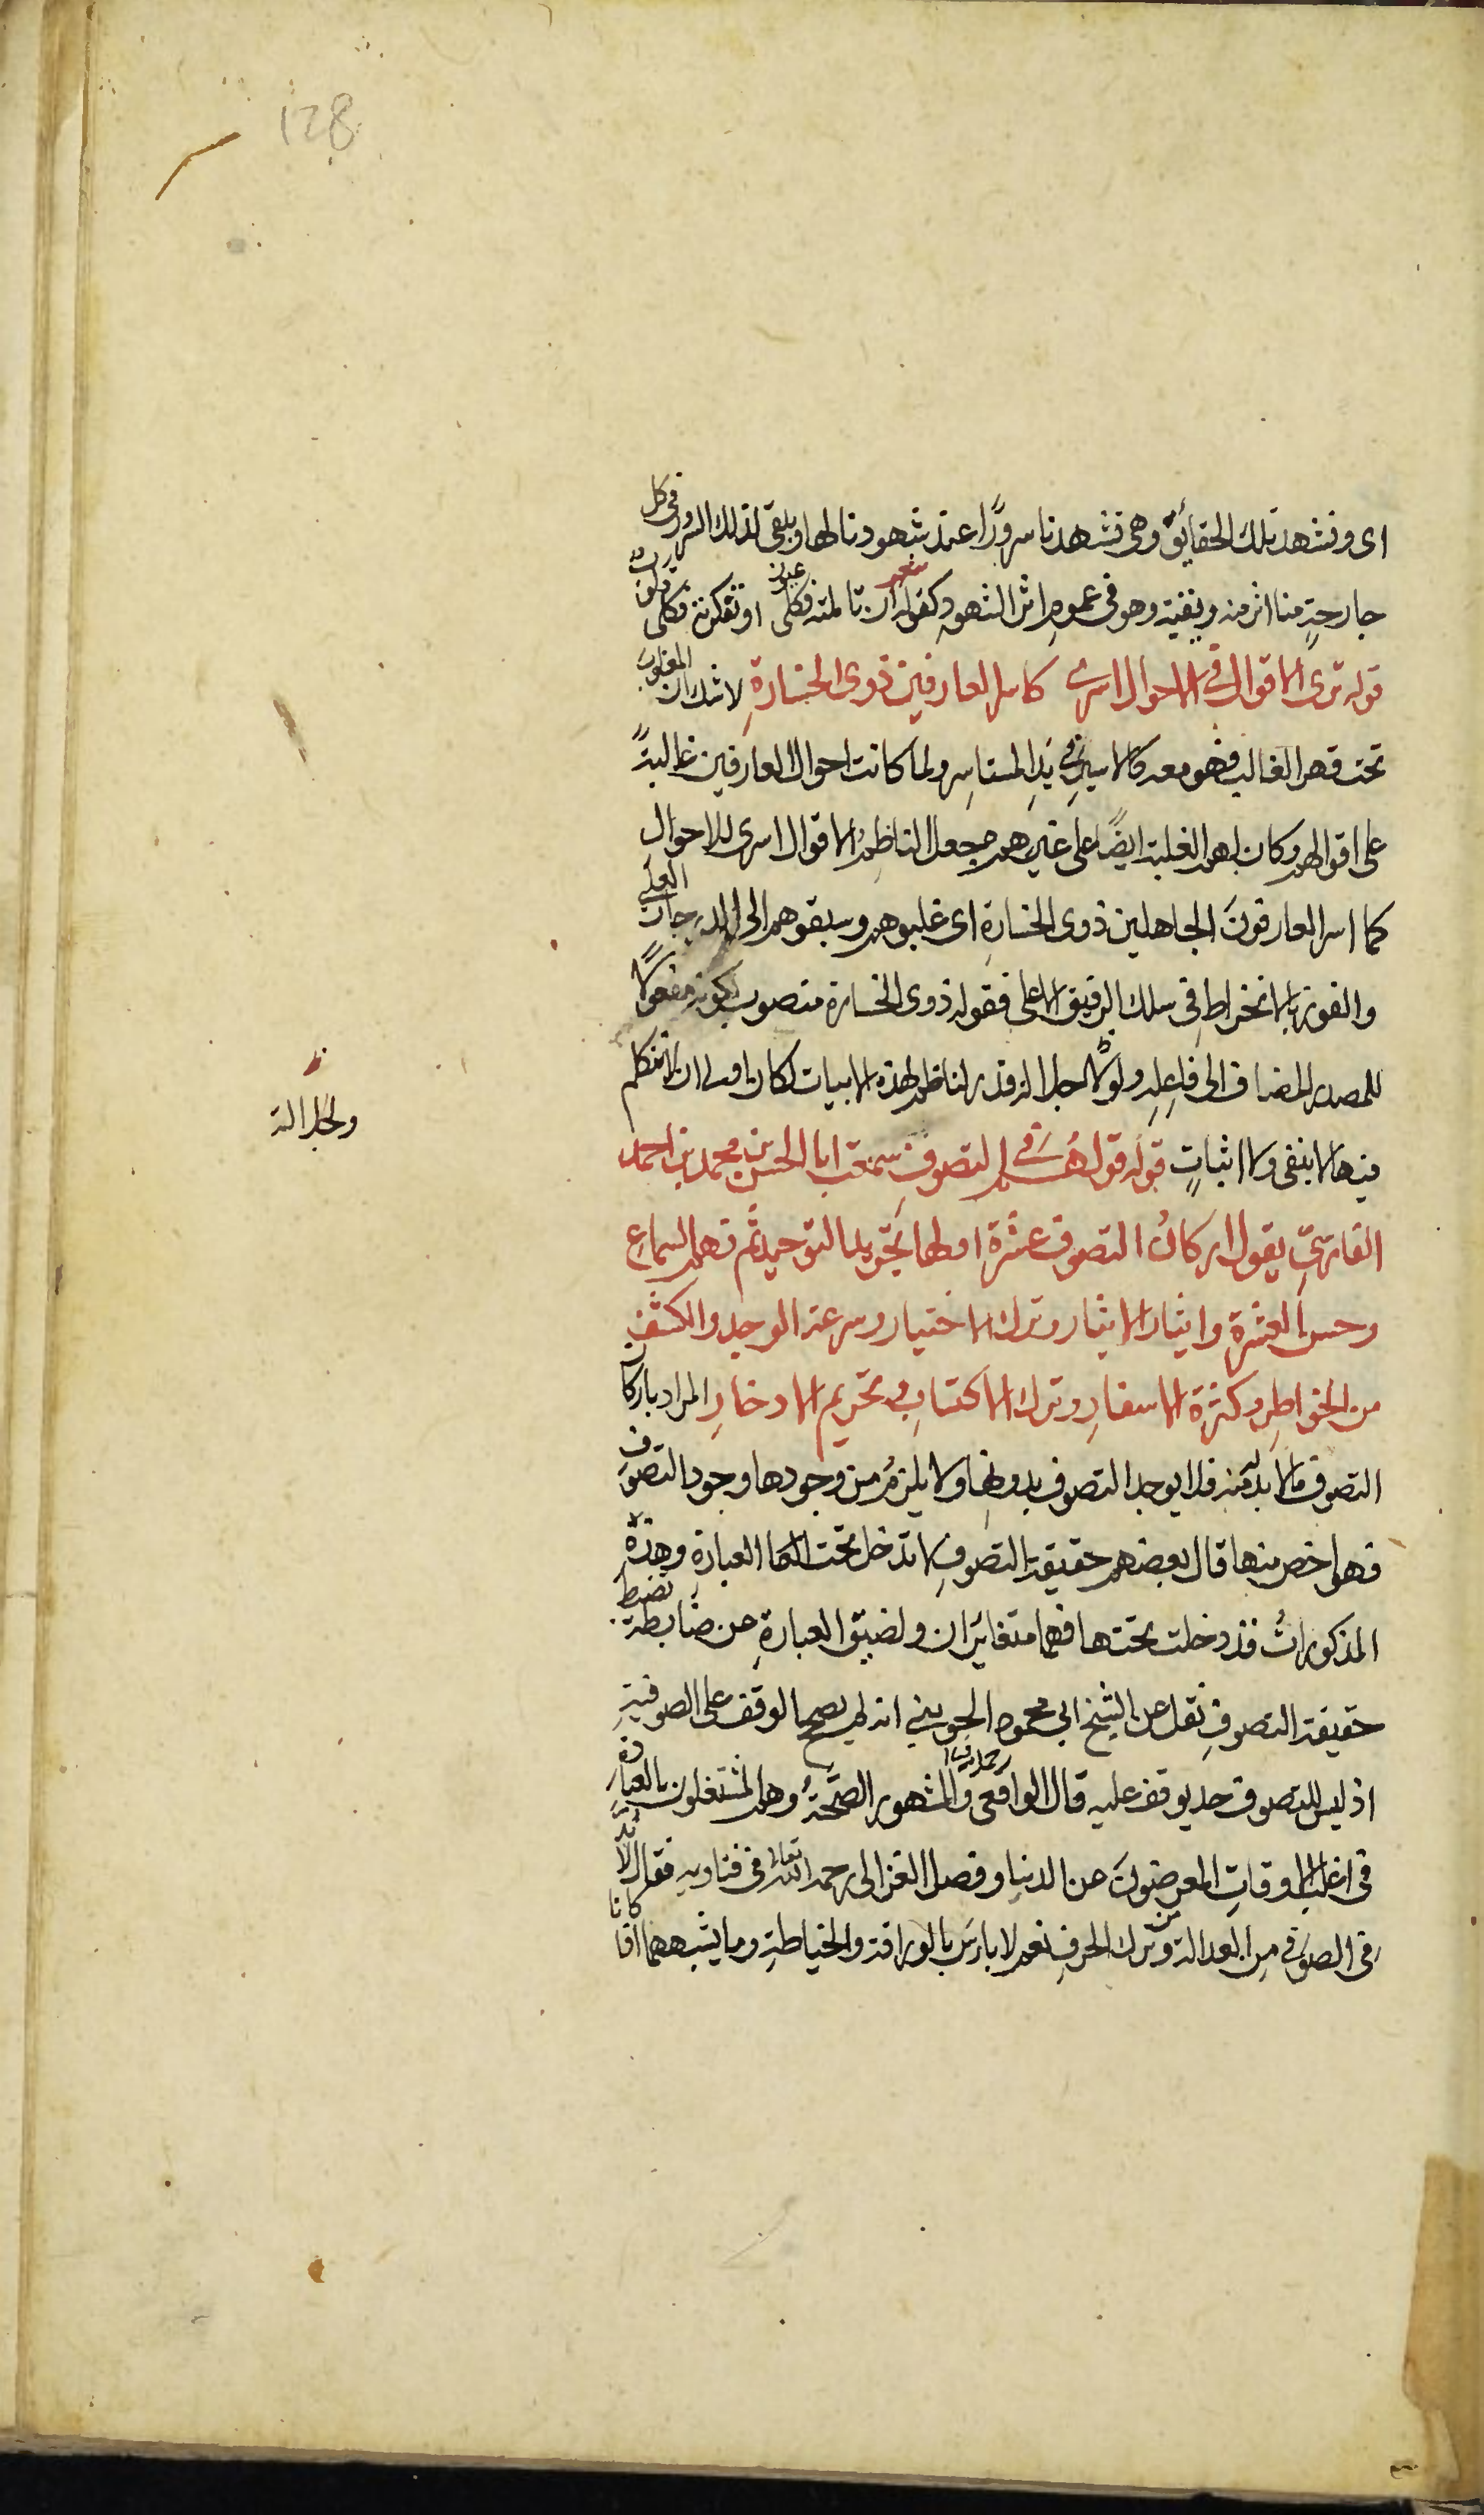 128
اى ونشهد تلك الحقائق وهى تشهدنا سرورًا عند شهودنا لها ويلقى لذلك السرور فى كل
جارحةٍ منا اثر منه وبقية وهو فى عموم اثر الشهود كقوله شعر ان تاملته فكلى عيون او تفكرته فكلى قلوب
قوله ترى الاقوال فى الاحوال اسرى كاسر العارفين ذوى الخسارةِ لا شك ان المغلوب
تحت قهر الغالب فهو معه كالاسيرِ فى يدِ المستاسِر ولما كانت احوال العارفين غالبةً
على اقوالهم وكان لهم الغلبة ايضًا على غيرهم جعل الناظِمُ الاقوال اسرى للاحوال
كما اسر العارفونَ الجاهلين ذوى الخسارةِ اى غلبوهم وسبقوهم الى الدرجات العلى
والفوز بالانخراطِ فى سلك الرفيق الاعلى فقوله ذوى الخسارة منصوب لكونه مفعولاً
للمصدر المضاف الى فاعِلِه ولولا جلالة قدر الناظم لهذه الابيات لكان اولى ان لا نتكلم
فيها لا بنفى ولا اثباتٍ قوله قولهُم فى التصوف سمعت ابا الحسن محمد بن احمد
الفارسىِّ يقول اركانُ التصوف عشرة اولها تجريد التوحيد ثم فهم السماعِ
وحسن العشرة وايثار الايثار وترك الاختيار وسرعة الوجد والكشف
من الخواطِر وكثرة الاسفارِ وترك الاكتسابِ وتحريم الادخارِ المراد باركان
التصوف ما لا بد منه فلا يوجد التصوف بدونها ولا يلزمُ من وجودها وجود التصوف
فهو اخص منها قال بعضهم حقيقة التصوفِ لا تدخل تحت العبارةِ وهذه
المذكوراتُ قد دخلت تحتها فهما متغايَران ولضيق العبارةِ عن ضابطة تضبط
حقيقة التصوفِ نقل عن الشيخ ابى محمد الجوينى انه لم يصح الوقف على الصوفيةِ
اذ ليس للتصوف حد يوقف عليه قال الرافعى رحمه الله والمشهور الصحّةُ وهم المشتغلون بالعبادة
فى اغلب الاوقاتِ المعرضونَ عن الدنيا وفصل الغزالى رحمه الله تعالى فى فتاويه فقال لا بدّ
فى الصوفى مِن العدالة ومن ترك الحرفِ نعم لا باسَ بالوراقة والخياطةِ وما يشبههما اذا كانا
ولجلالة